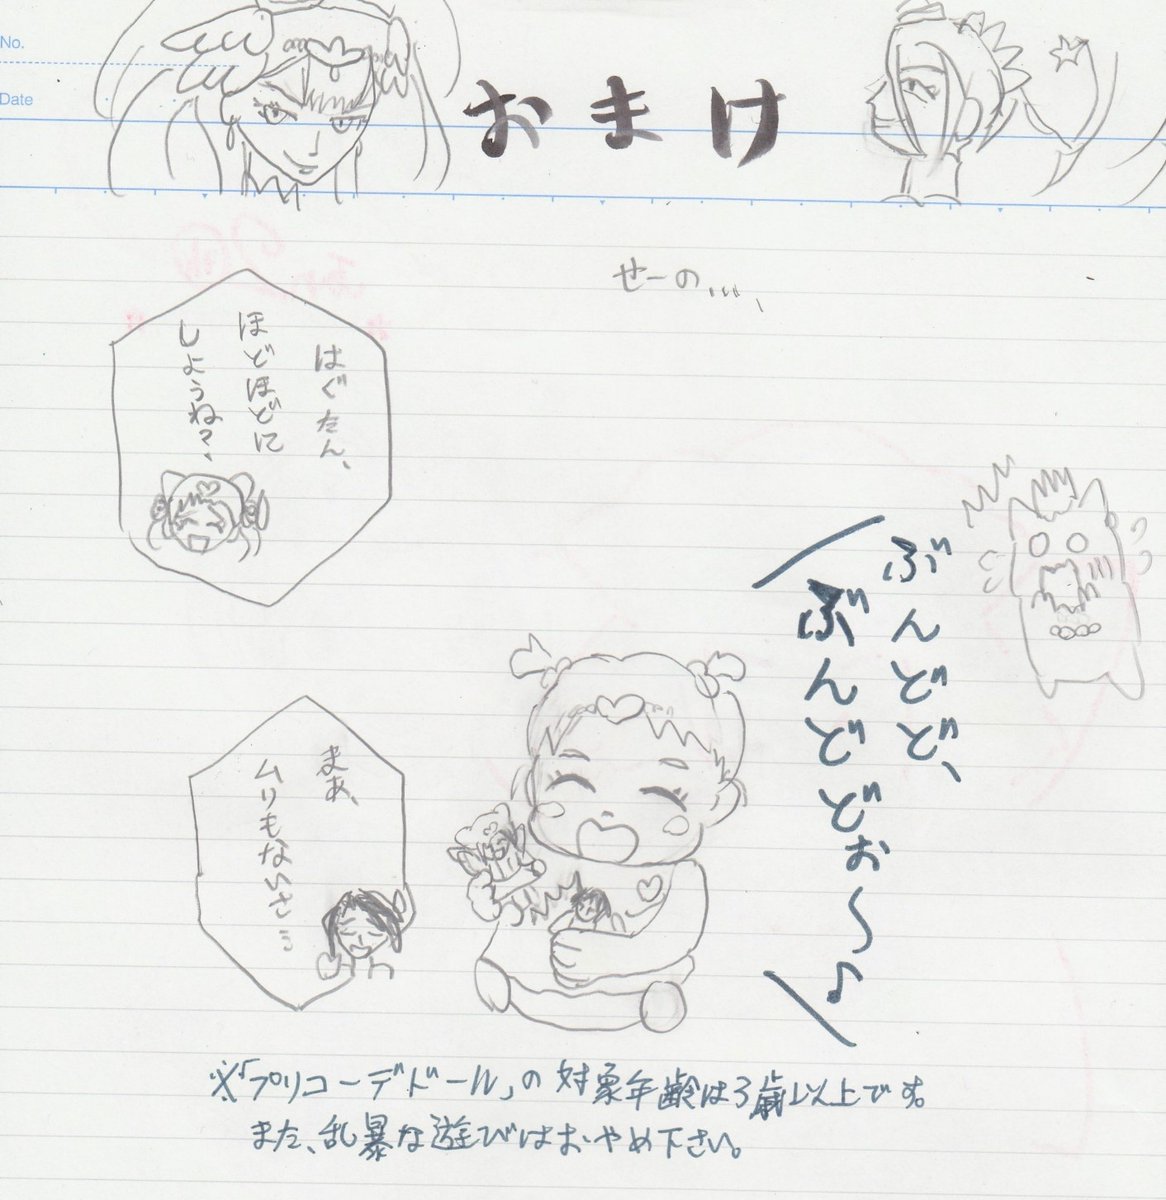 No.
Date
おまけ
せーの、、、、
ぶんどど、
ぶんどどぉ〜♪
はぐたん、
ほどほどに
しようね？
まあ、
ムリもないさ
※「プリコーデドール」の対象年齢は3歳以上です。
また、乱暴な遊びはおやめ下さい。